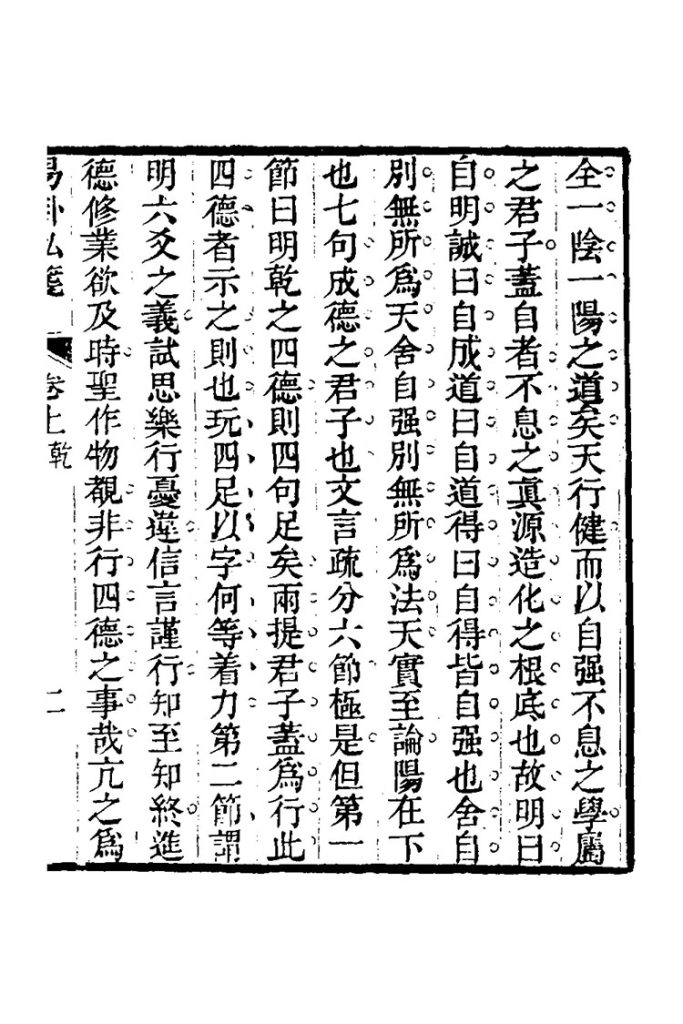 全一陰一陽之道矣天行健而以自强不息之學屬
之君子蓋自者不息之眞源造化之根底也故明曰
自明誠曰自成道曰自道得曰自得皆自强也舍自
別無所爲天舍自强別無所爲法天實至論陽在下
也七句成德之君子也文言疏分六節極是但第一
節曰明乾之四德則四句足矣兩提君子蓋爲行此
四德者示之則也玩四足以字何等着力第二節謂
明六爻之義試思樂行憂違信言謹行知至知終進
德修業欲及時聖作物覩非行四德之事哉亢之爲
易卦私箋 卷上乾 二